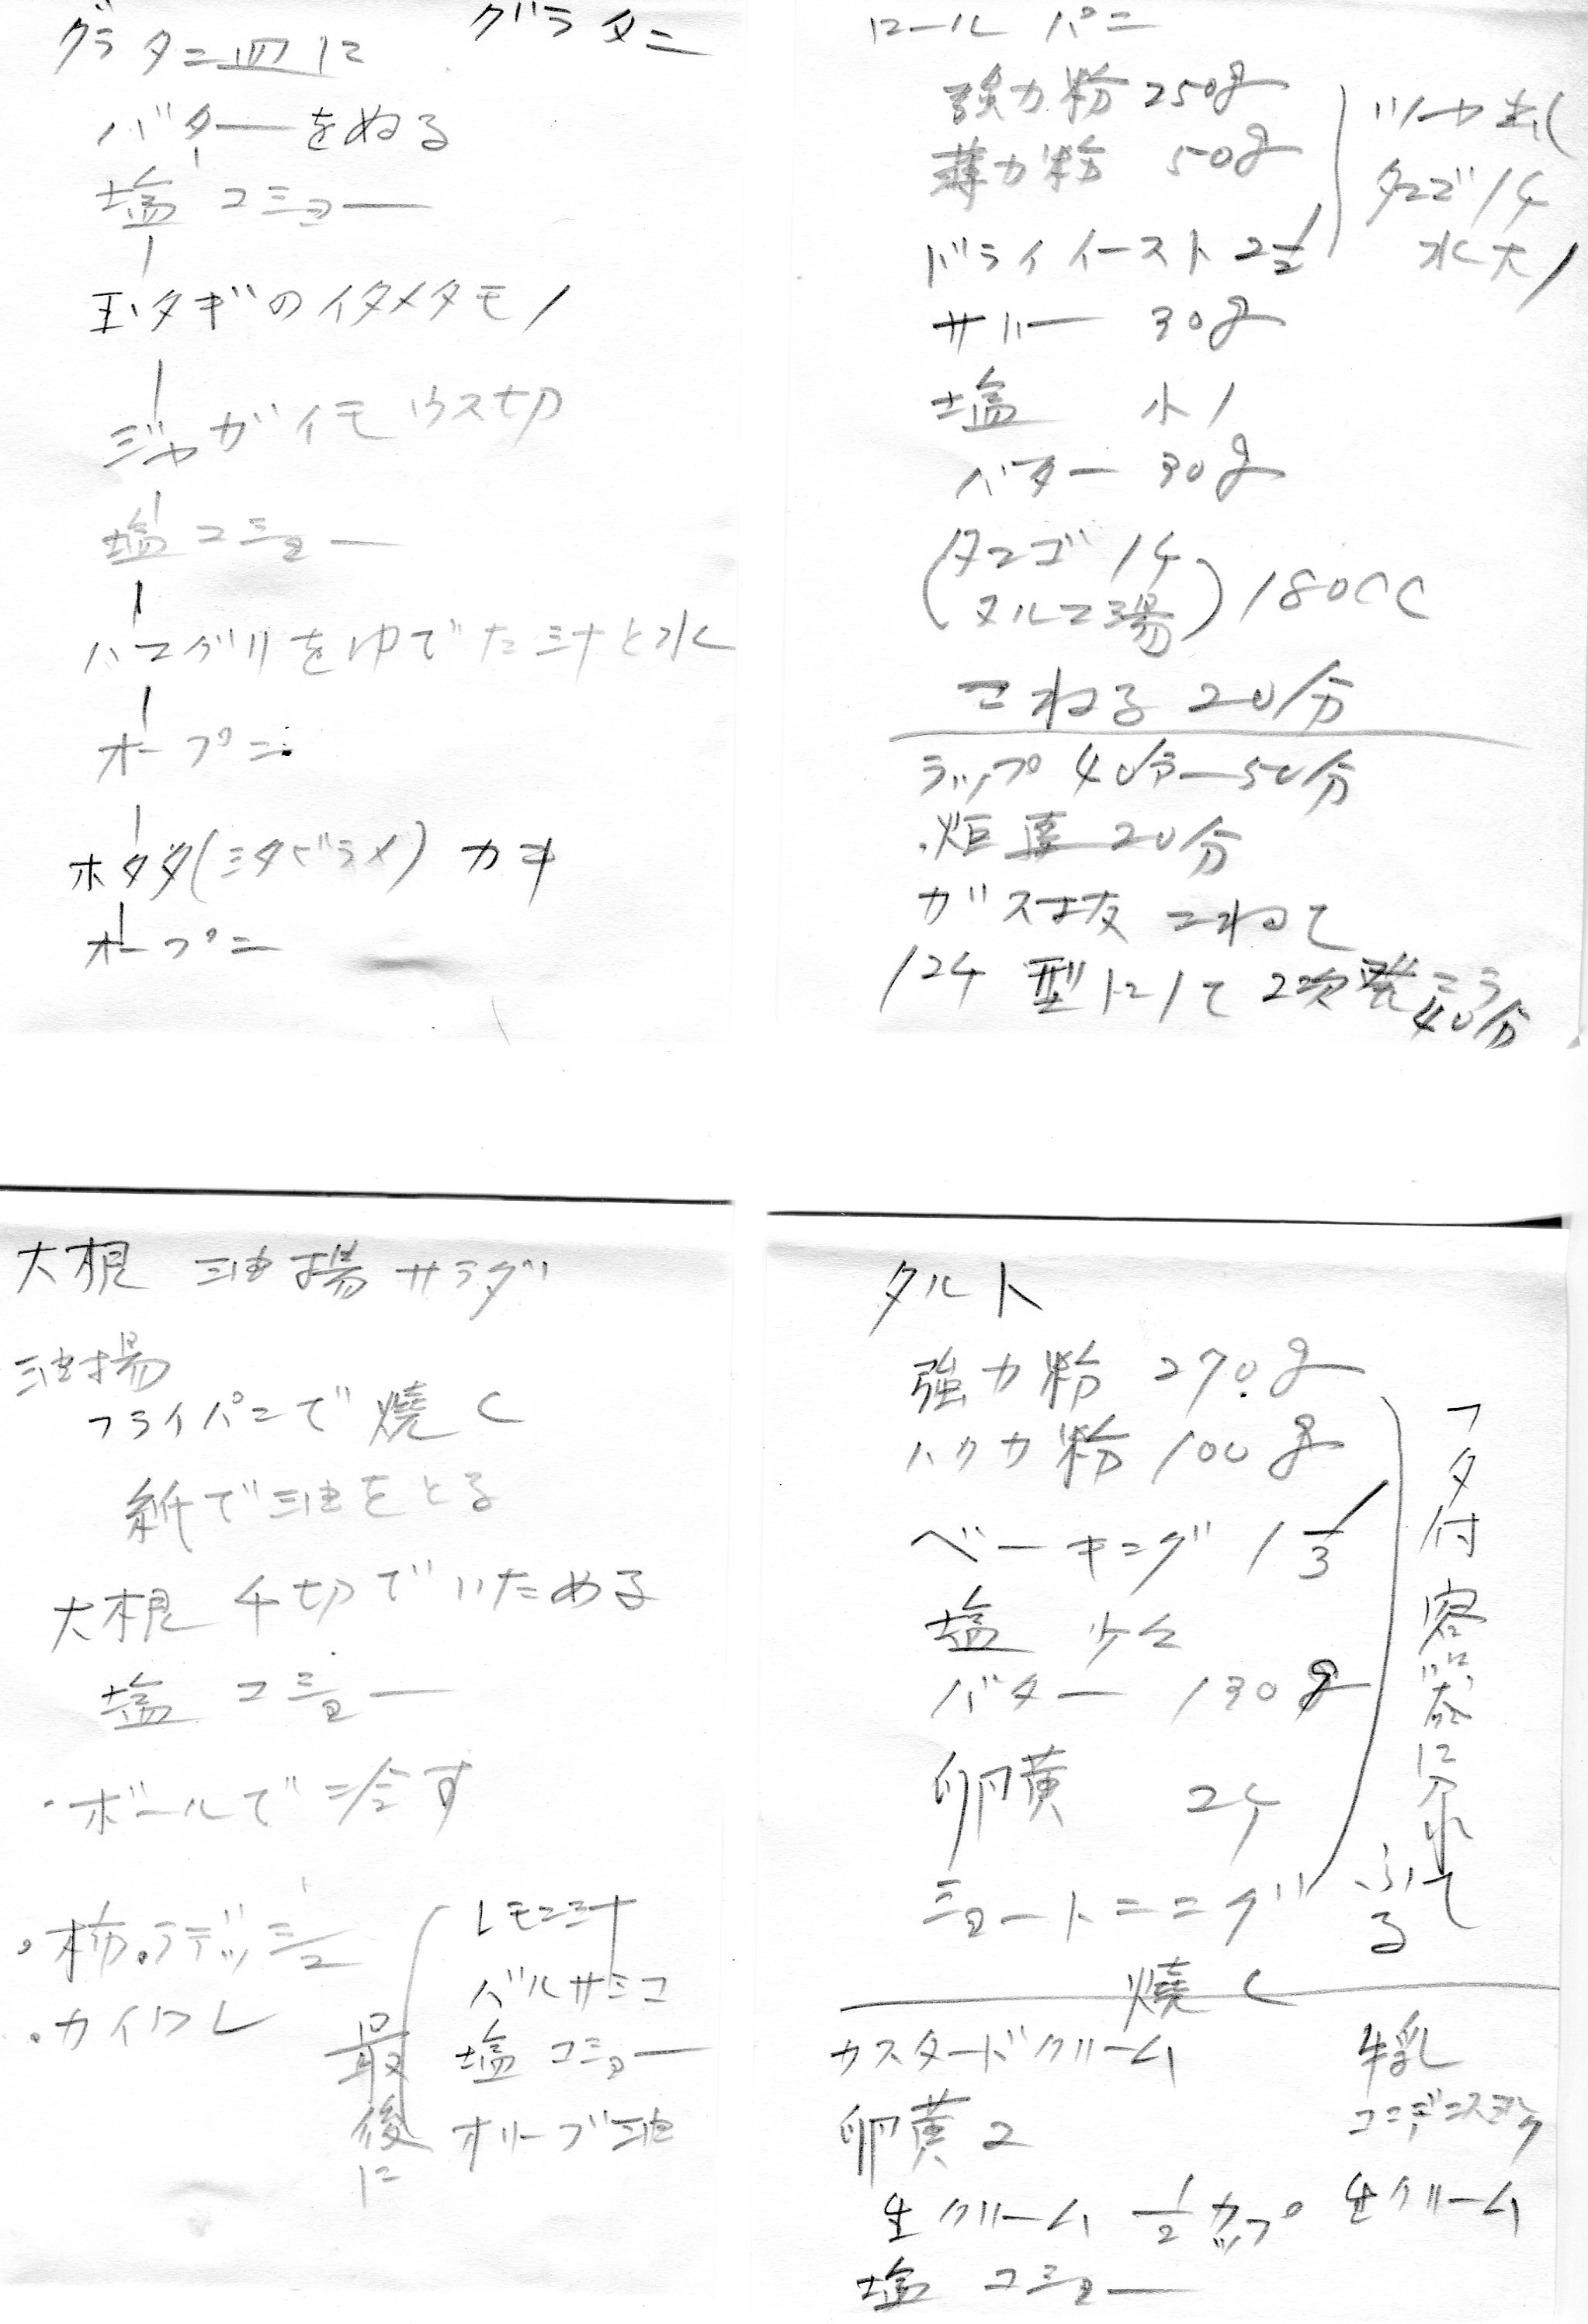 グラタン
グラタン皿に
バターをぬる
塩コショー
玉タギのイタメタモノ
ジャガイモウス切
塩コショー
ハマグリをゆでた汁と水
オーブン
ホタタ(シタビラメ) カキ
オーブン
ロールパン
強力粉 250g
薄力粉 50g
ドライイースト 2 1/2
サトー 30g
塩 小1
バター 30g
(タマゴ 1ケ
ヌルマ湯) 180CC
ツヤ出し
タマゴ 1ケ
水大1
こねる 20分
ラップ 40分―50分
20分
ガス抜 こねて
12ケ 型にして 2次発コウ
40分
大根 油揚サラダ
油揚
フライパンで焼く
紙で油をとる
大根 千切でいためる
塩 コショー
・ボールで冷す
・柿・ラデッシュ
・カイワレ
最後に
レモン汁
バルサミコ
塩 コショー
オリーブ油
タルト
強力粉 270g
ハクカ粉 100g
ベーキング 1 1/3
塩 少々
バター 130g
卵黄 2ケ
ショートニング
フタ付容器に入れて
ふる
焼く
カスタードクリーム
卵黄 2
生クリーム 1/2カップ
塩 コショー
牛乳
コンデンスミルク
生クリーム